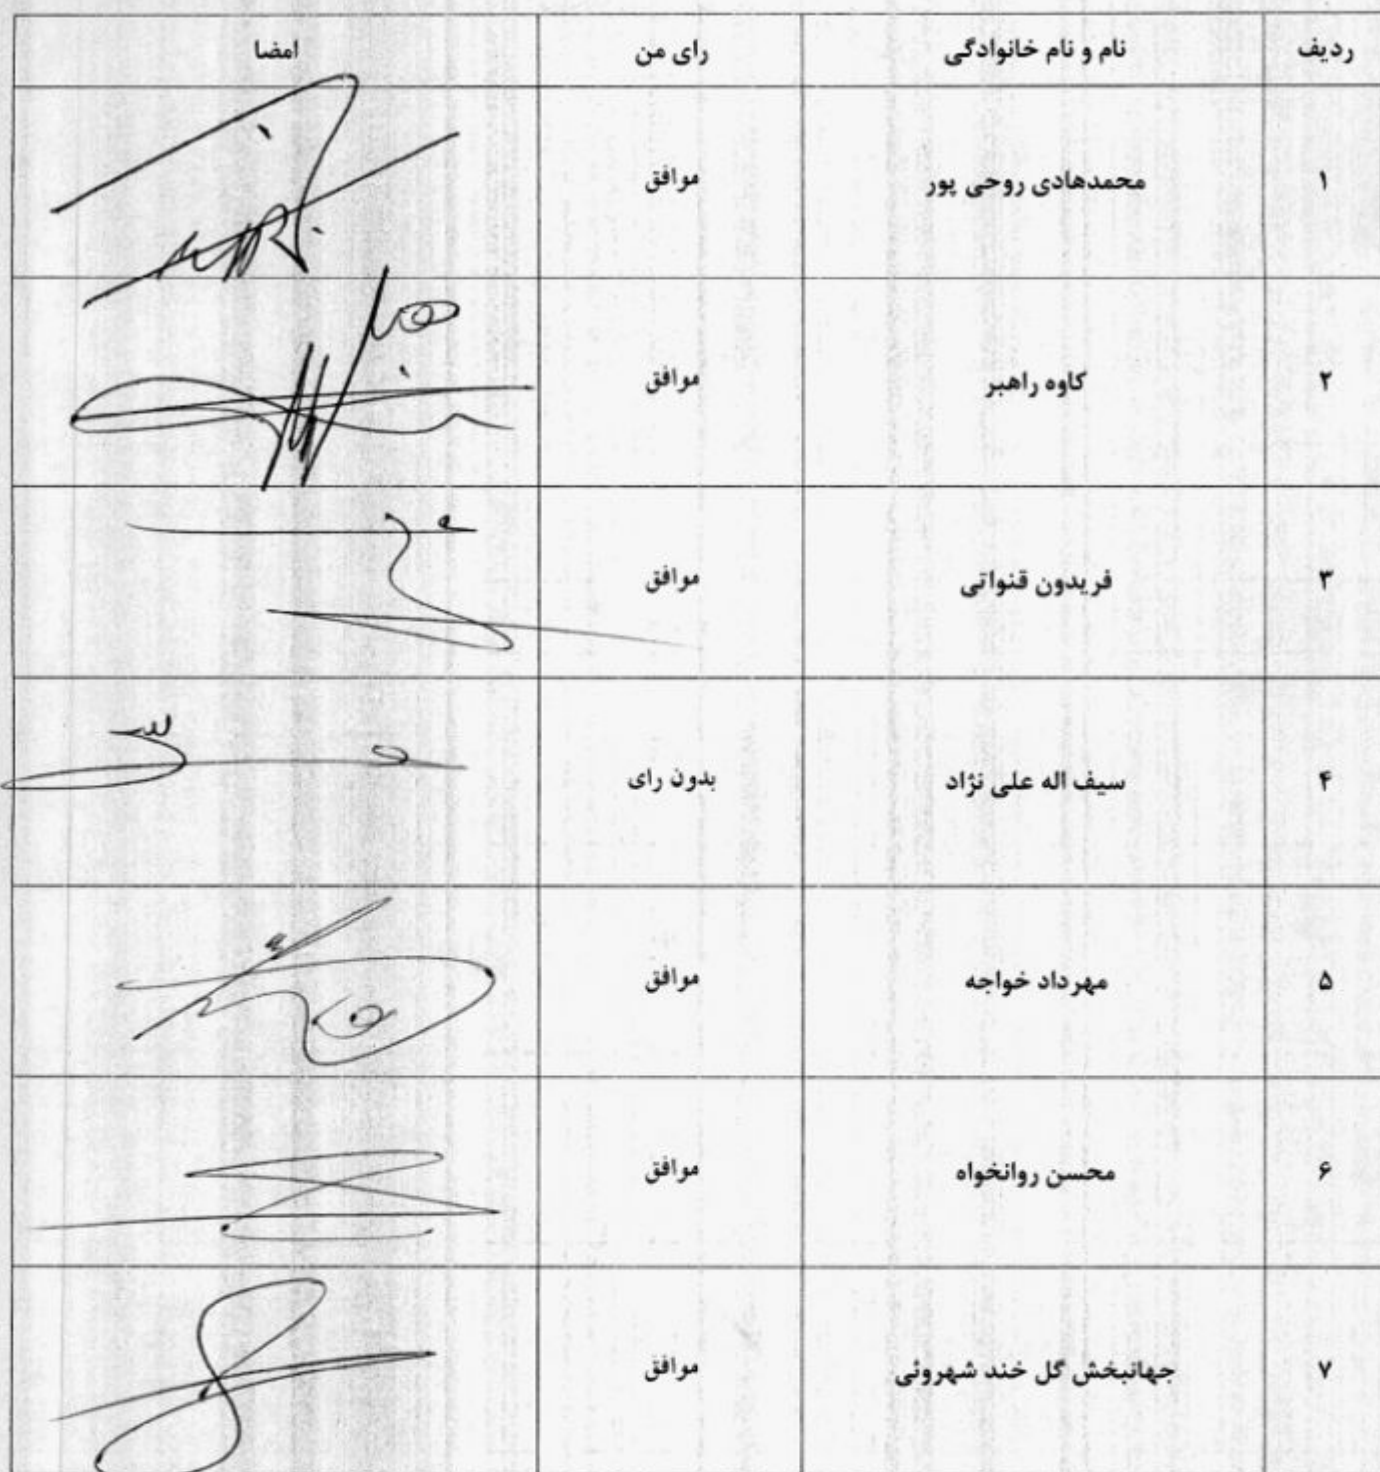 ردیف نام و نام خانوادگی رای من امضا
۱ محمدهادی روحی پور موافق
۲ کاوه راهبر موافق
۳ فریدون قنواتی موافق
۴ سیف اله علی نژاد بدون رای
۵ مهرداد خواجه موافق
۶ محسن روانخواه موافق
۷ جهانبخش گل خند شهروئی موافق